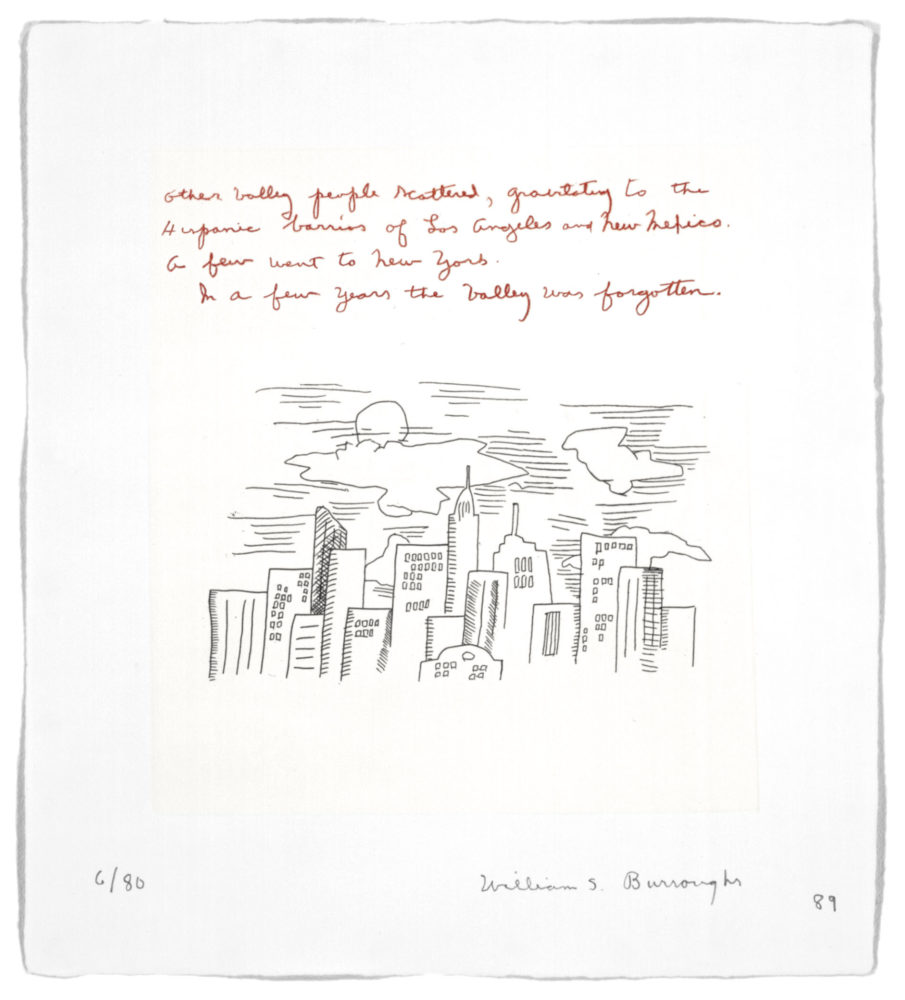 other valley people scattered, gravitating to the
Hispanic barrios of Los Angeles and New Mexico.
A few went to New York.
In a few years the Valley was forgotten.
6/80
William S. Burroughs
89